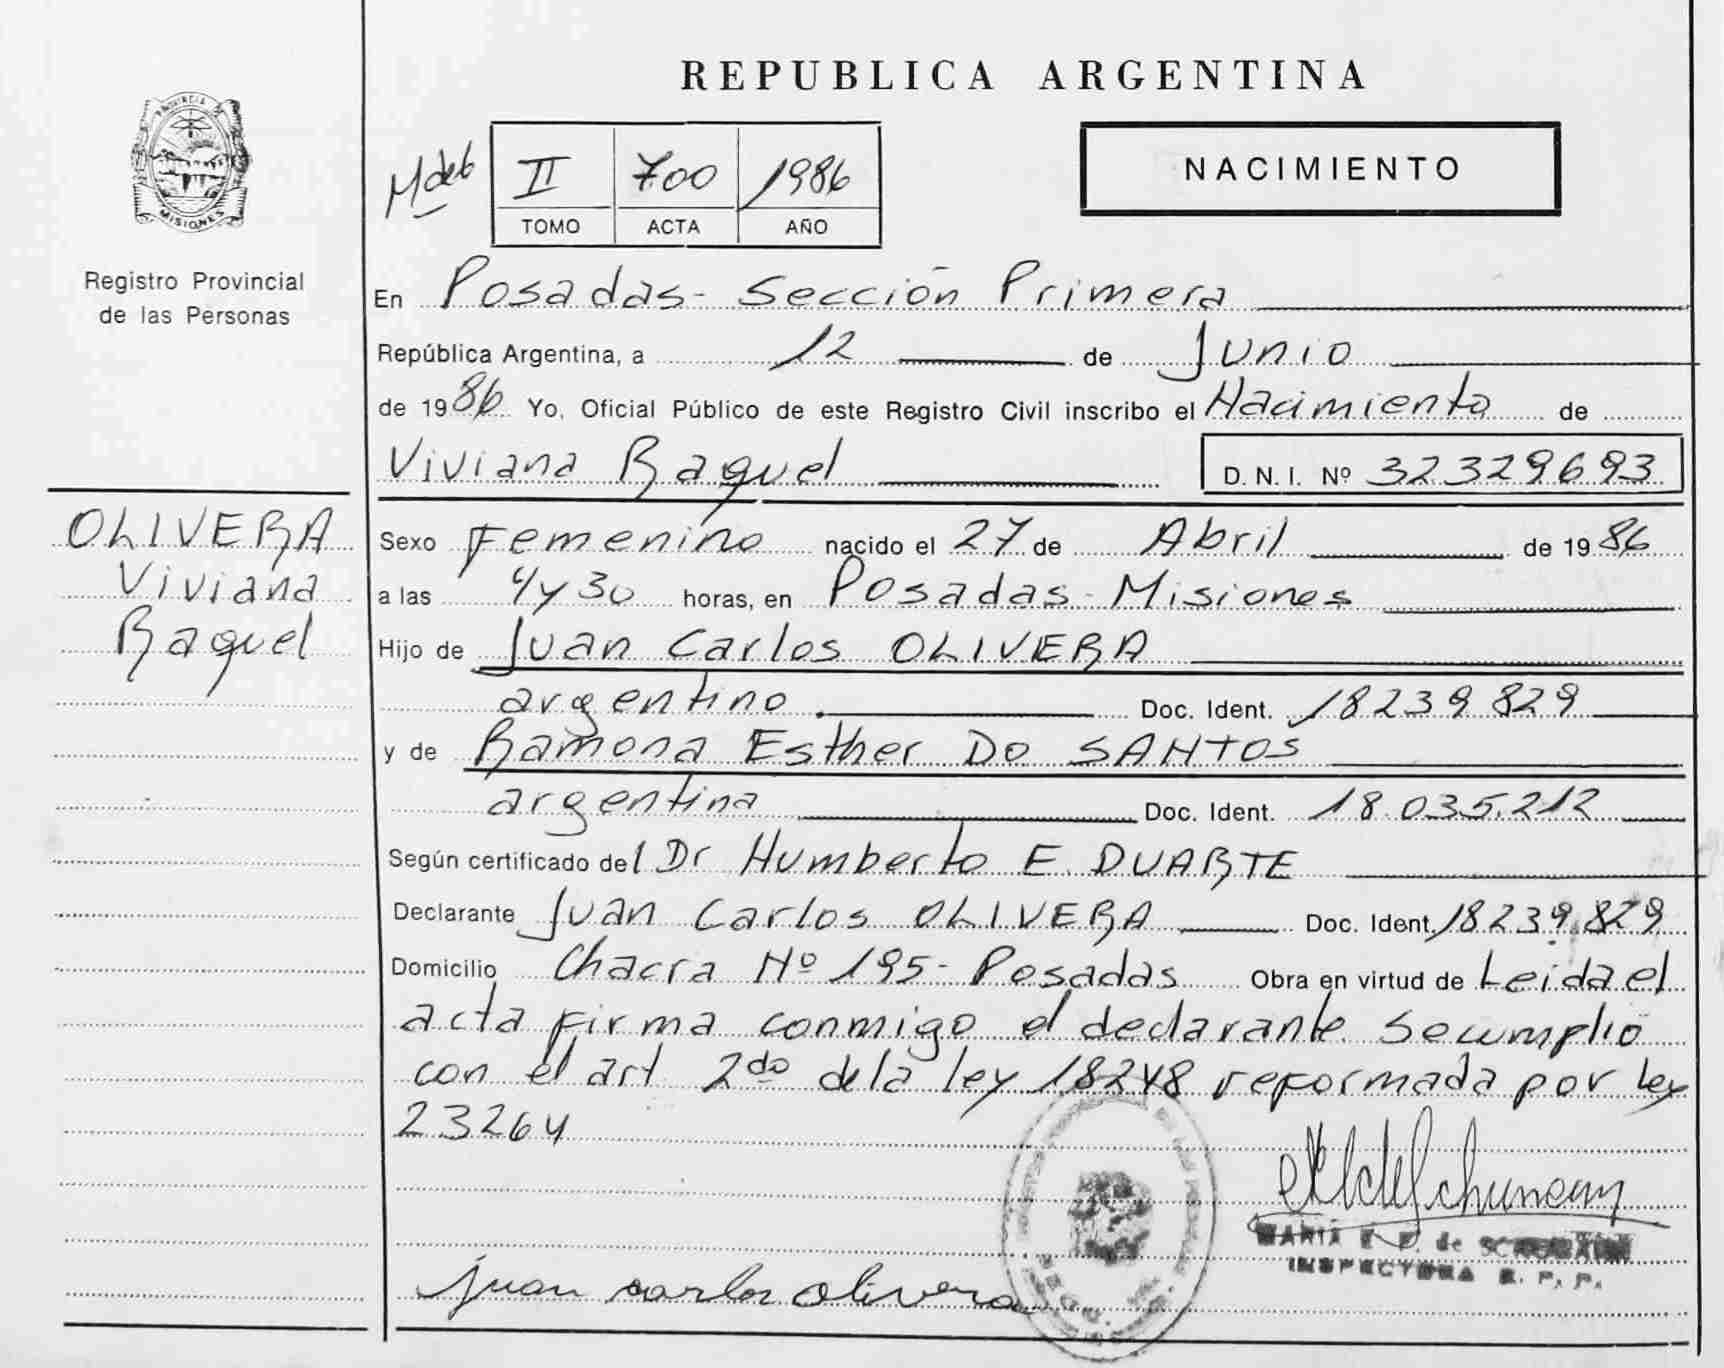 REPUBLICA ARGENTINA
PROVINCIA DE
MISIONES
Registro Provincial
de las Personas
II 700 1986
TOMO ACTA AÑO
NACIMIENTO
En Posadas- Sección Primera
República Argentina, a 12 de Junio
de 1986 Yo, Oficial Público de este Registro Civil inscribo el Nacimiento de
Viviana Raquel D. N. I. Nº 32329693
OLIVERA
Viviana
Raquel
Sexo Femenino nacido el 27 de Abril de 1986
a las 4 y 30 horas, en Posadas - Misiones
Hijo de Juan Carlos OLIVERA
argentino. Doc. Ident. 18239829
y de Ramona Esther Do SANTOS
argentina Doc. Ident. 18.035.212
Según certificado del Dr Humberto E. DUARTE
Declarante Juan Carlos OLIVERA Doc. Ident. 18239.829
Domicilio Chacra Nº 195- Posadas Obra en virtud de Leida el
acta firma conmigo el declarante. Se cumplió
con el art 2do de la ley 18248 reformada por ley
23264
MARIA E. de
INSPECTORA R. P. P.
juan carlos olivera